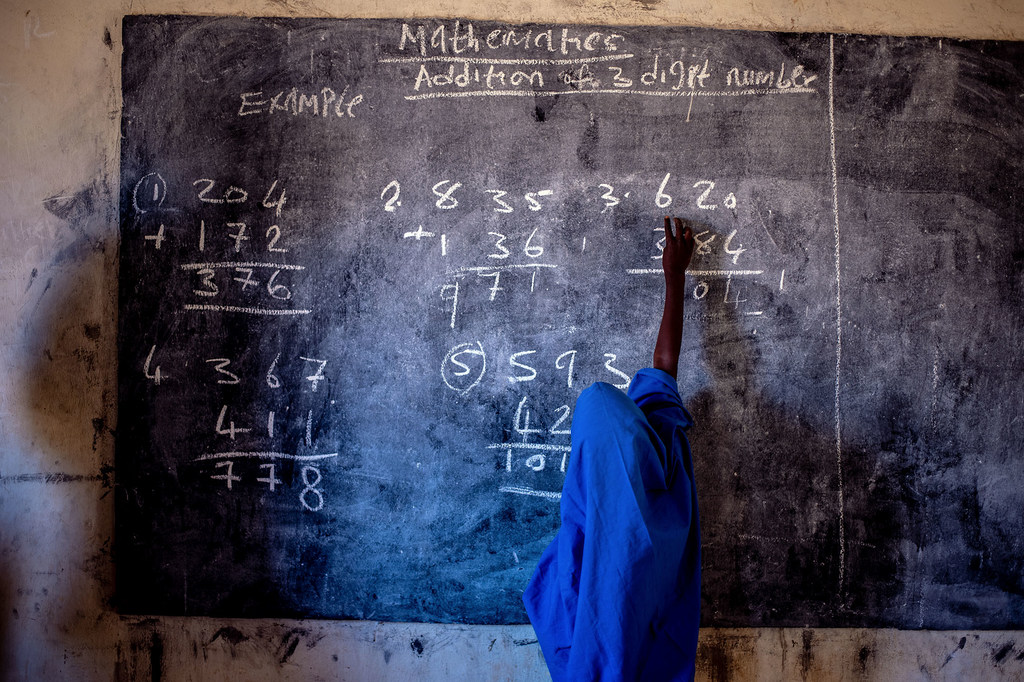 Mathematics
Addition of 3 digit number
EXAMPLE
(1) 204
+ 172
376
2. 835
+ 136 1
971
3. 620
384
04 1
4 367
411
778
(5) 593
42
101